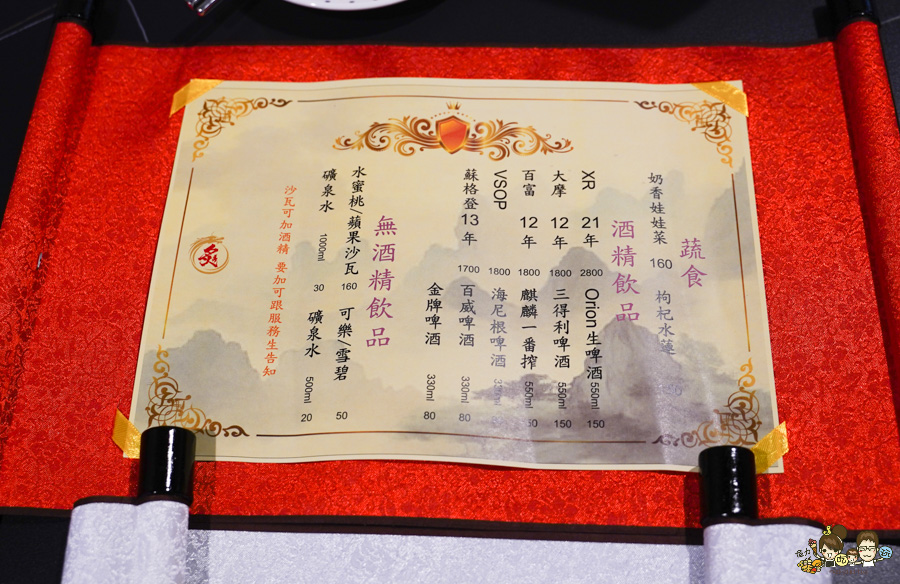 蔬食
奶香娃娃菜 160
枸杞水蓮
酒精飲品
XR 21年 2800
Orion生啤酒 550ml 150
大摩 12年 1800
三得利啤酒 550ml 150
百富 12年 1800
麒麟一番搾 550ml
VSOP 1800
海尼根啤酒
蘇格登13年 1700
百威啤酒 330ml 80
金牌啤酒 330ml 80
無酒精飲品
水蜜桃/蘋果沙瓦 160
可樂/雪碧 50
礦泉水 1000ml 30
礦泉水 500ml 20
沙瓦可加酒精 要加可跟服務生告知
炙